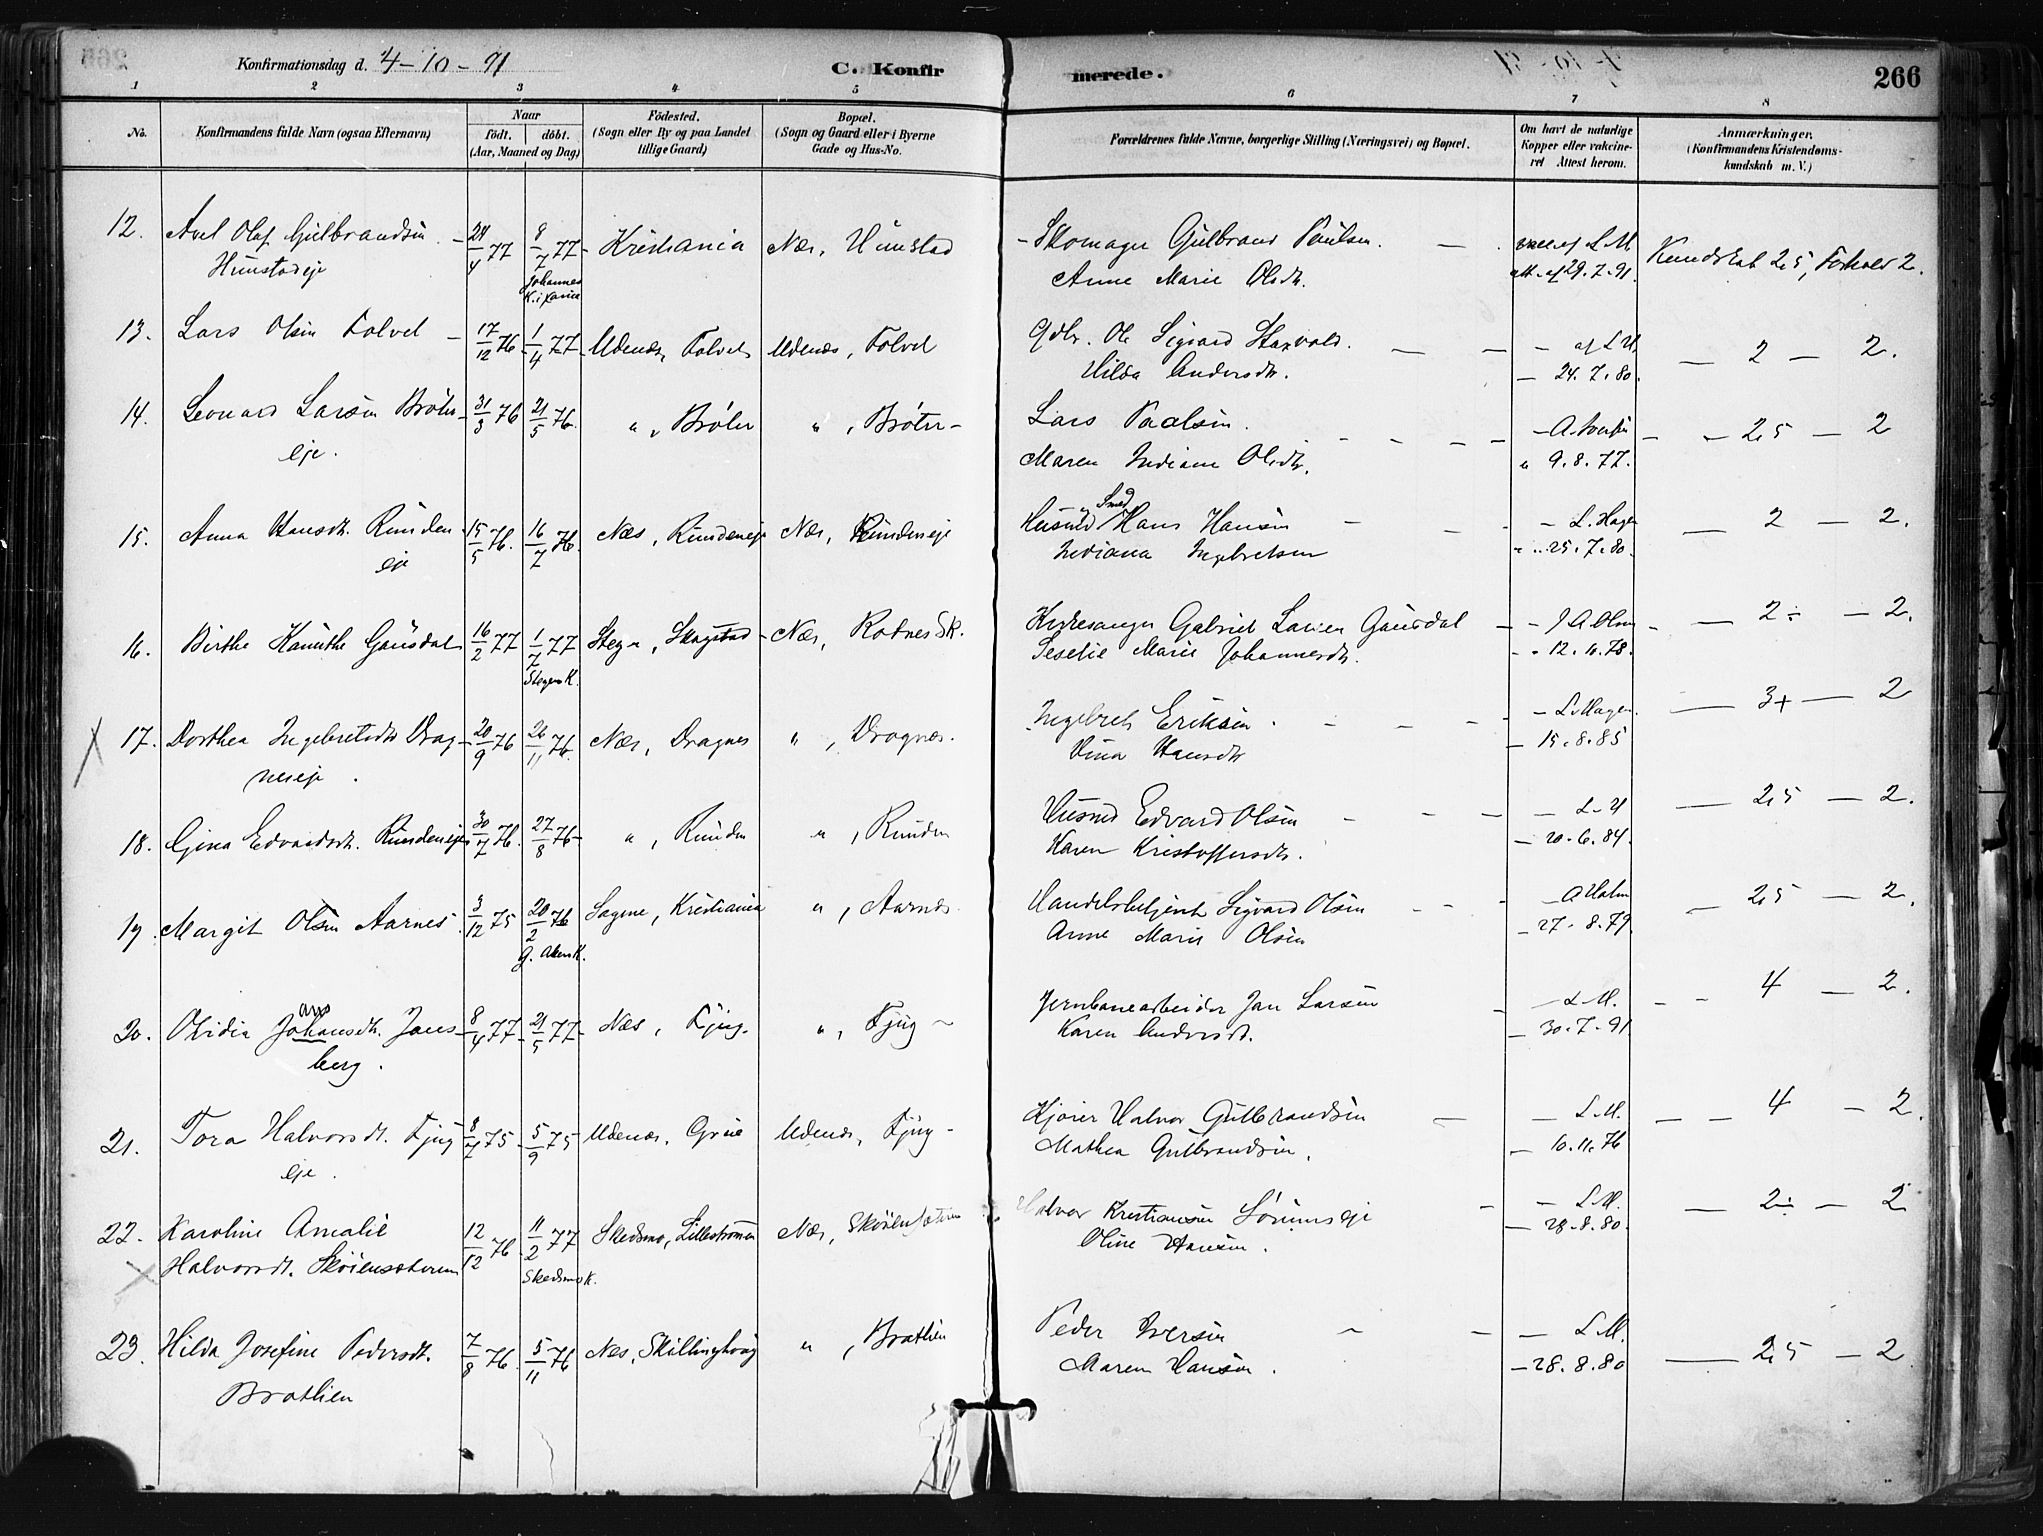 Konfirmationsdag d. 4-10-91 C. Konfirmerede. 266
1 2 3 4 5 6 7 8
No. Konfirmandens fulde Navn (ogsaa Efternavn) Naar födt. döbt. (Aar, Maaned og Dag) Födested. (Sogn eller By og paa Landet tillige Gaard) Bopæl. (Sogn og Gaard eller i Byerne Gade og Hus-No. Forældrenes fulde Navne, borgerlige Stilling (Næringsvei) og Bopæl. Om havt de naturlige Kopper eller vakcineret Attest herom. Anmærkninger. (Konfirmandens Kristendomskundskab m. V.)
12. Axel Olaf Gulbrandsen 24/4 77 8/7 77 Kristiania Næs, Hunstad Skomager Gulbrand Paulsen. vacc. af L.M. Kundskab 2,5, Forhold 2.
Hunstadeje Johannes K. i Xania Anne Marie Olsdtr. att. af 29.7.91
13. Lars Olsen Folvel 17/12 76 1/4 77 Udenæs, Folvel Udenæs, Folvel Gdbr. Ole Sigvard Staxvold. af L.M. 2 2.
Hilda Andersdtr. 24.7.80.
14. Leonard Larsen Bröter 31/3 76 21/5 76 " , Bröter " , Bröter Lars Paalsen. 2,5 2
eje. Maren Indiane Olsdtr. 9.8.77.
15. Anna Hansdtr. Runden 15/5 76. 16/7 76. Næs, Rundeneje Næs, Rundeneje Husmd og Smed Hans Hansen L. Hagen 2 2.
eje Indiana Ingebretsen 25.7.80.
16. Birthe Kanuthe Gausdal 16/2 77 1/7 77 Stegn, Skagstad Næs, Rotnes Sk. Kirkesanger Gabriel Larsen Gausdal J A Olsen 2÷ 2.
Stegens K. Marie Johannesdtr. 12.10.78.
17. Dorthea Ingebretsdtr Drag 20/9 76 26/11 76. Næs, Dragnes " , Dragnes. Ingebret Eriksen. L. Hagen. 3+ 2
neseje. Hansdtr 15.8.85
18. Gina Edvardsdtr. Rundeneje 30/7 76. 27/8 76 " , Runden " , Runden Husmd Edvard Olsen L. M 2,5 2.
Karen Kristoffersdtr. 20.6.84.
19. Margit Olsen Aarnes 3/12 75 20/2 76 Sagene, Kristiania " , Aarnes. Handelsbetjent Sigvard Olsen A Holm 2,5 2.
G. Akers K. Anne Marie Olsen 27.8.79.
20. Olidia Johansdtr. Jans 8/4 77 21/5 77 Næs, Fjug. " , Fjug Jernbanearbeider Jan Larsen L.M. 4 2.
berg. Karen Andersdt. 30.7.91
21. Tora Halvorsdt. Fjug 8/7 75 5/9 75 Udenæs, Grue Udenæs, Fjug Kjörer Halvor Gulbrandsen L.M. 4 2.
eje. Mathea Gulbrandsen. 10.11.76
22. Karoline Amalie 12/12 76. 11/2 77 Skedsmo, Lilleströmmen Næs, Sköiensæteren Halvor Kristiansen L.M. 2÷ 2
Halvorsdt. Sköiensæteren Skedsmo K. Oline Hansen. 28.8.80.
23. Hilda Josefine Pedersdt. 7/8 76. 5/11 76 Næs, Skillinghaug " , Bratlien Peder Iversen L.M. 2,5 2
Bratlien Maren Hansen. 28.8.80